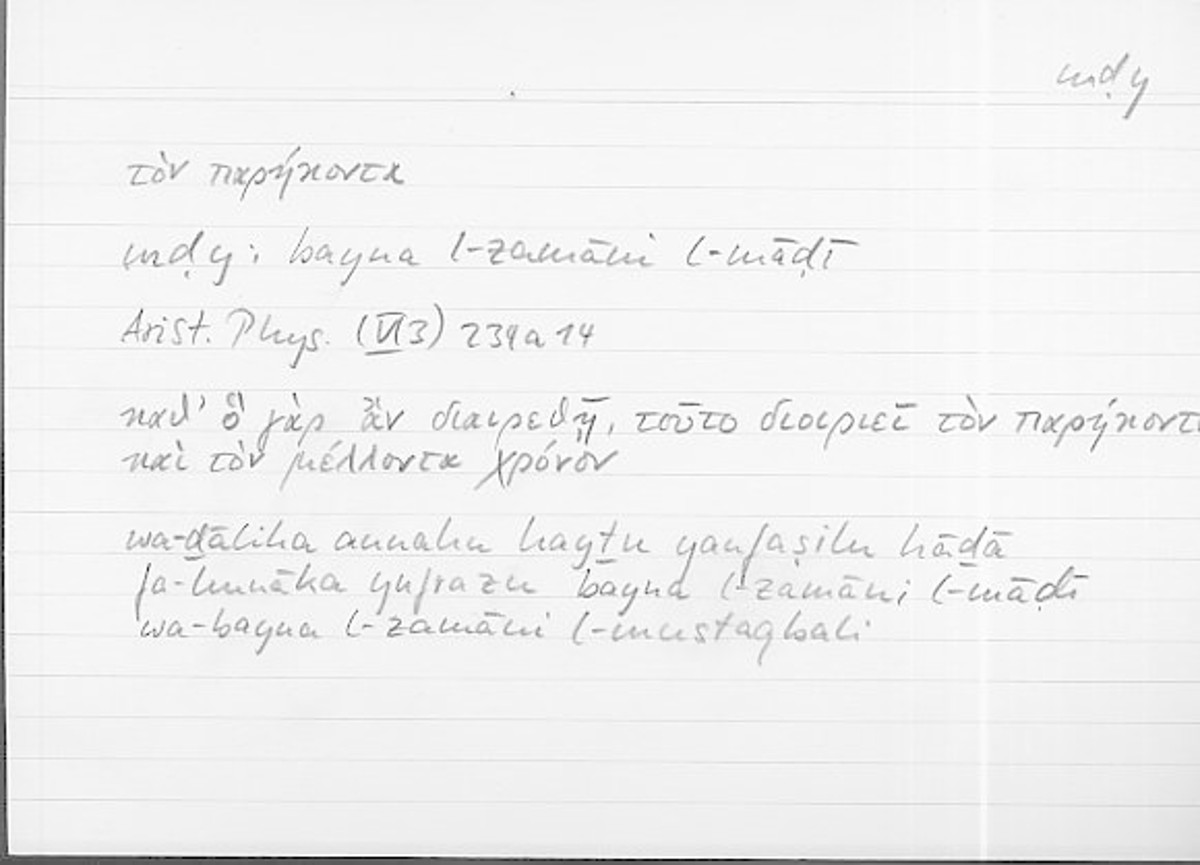 mḍy
τὸν παρήκοντα
mḍy: bayna l-zamāni l-māḍī
Arist. Phys. (VI3) 234a14
καθ' ὃ γὰρ ἂν διαιρεθῇ, τοῦτο διοριεῖ τὸν παρήκοντ
καὶ τὸν μέλλοντα χρόνον
wa-ḏālika annahu ḥayṯu yanfaṣilu hāḏā
fa-hunāka yufrazu bayna l-zamāni l-māḍī
wa-bayna l-zamāni l-mustaqbali